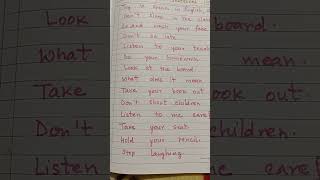 Try to speak in English
Don't sleep in the class
Go and wash your face
Don't be late
Listen to your
Do your homework
Look at the board.
What does it mean
Take your book out
Don't shout children
Listen to me
Take your seat
Hold your pencil.
Stop laughing.
Look
What
Take
Don't
Listen
board.
mean.
out.
children.